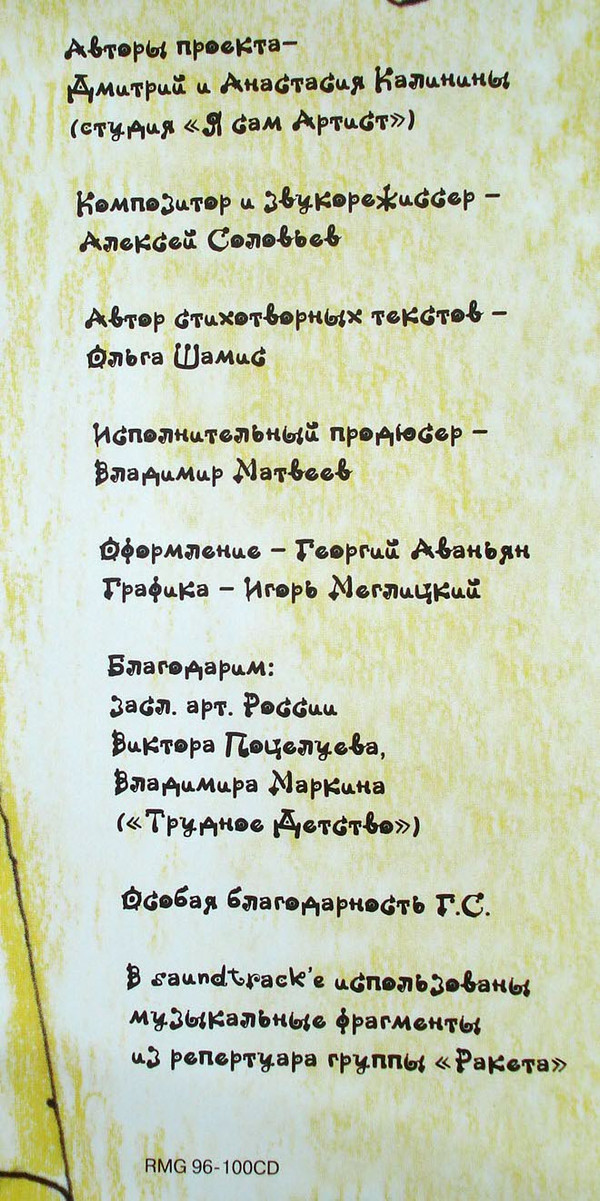 Авторы проекта–
Дмитрий и Анастасия Калинины
(студия «Я сам Артист»)
Композитор и звукорежиссер –
Алексей Соловьев
Автор стихотворных текстов –
Ольга Шамис
Исполнительный продюсер –
Владимир Матвеев
Оформление – Георгий Аваньян
Графика – Игорь Меглицкий
Благодарим:
засл. арт. России
Виктора Поцелуева,
Владимира Маркина
(«Трудное Детство»)
Особая благодарность Г.С.
В saundtrack'е использованы
музыкальные фрагменты
из репертуара группы «Ракета»
RMG 96-100CD